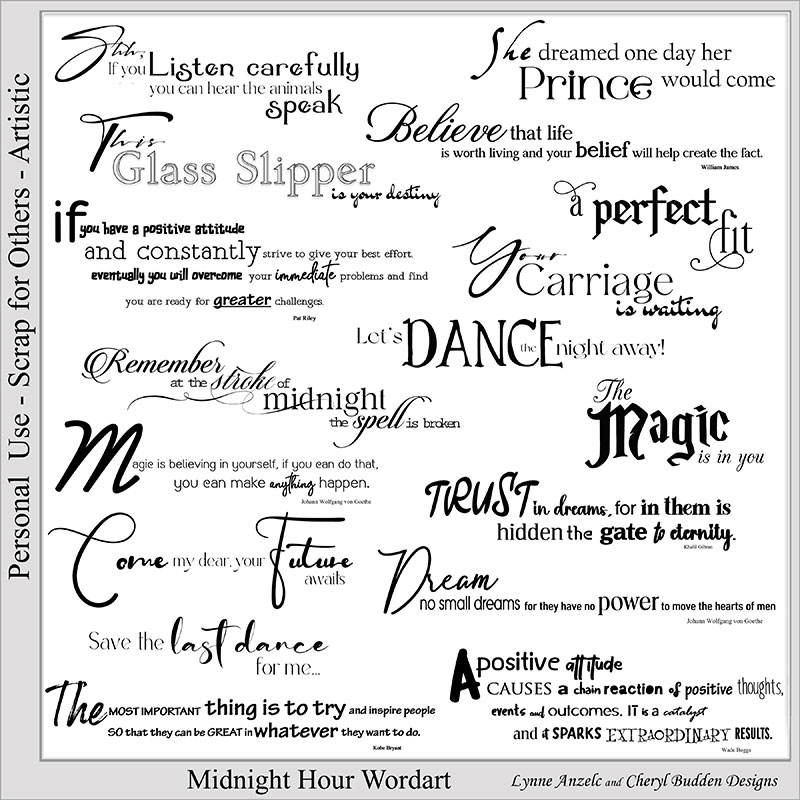 Personal Use - Scrap for Others - Artistic
Shh,
If you Listen carefully
you can hear the animals
speak
She dreamed one day her
Prince would come
This
Glass Slipper
is your destiny
Believe that life
is worth living and your belief will help create the fact.
William James
if you have a positive attitude
and constantly strive to give your best effort.
eventually you will overcome your immediate problems and find
you are ready for greater challenges.
Pat Riley
a perfect
fit
Your
Carriage
is waiting
Let's DANCE the night away!
Remember
at the stroke of
midnight
the spell is broken
The
Magic
is in you
Magic is believing in yourself, if you can do that,
you can make anything happen.
Johann Wolfgang von Goethe
TRUST in dreams, for in them is
hidden the gate to eternity.
Khalil Gibran
Come my dear, your Future
awaits
Dream
no small dreams for they have no power to move the hearts of men
Johann Wolfgang von Goethe
Save the last dance
for me...
The MOST IMPORTANT thing is to try and inspire people
SO that they can be GREAT in whatever they want to do.
Kobe Bryant
A positive attitude
CAUSES a chain reaction of positive thoughts,
events and outcomes. IT is a catalyst
and it SPARKS EXTRAORDINARY RESULTS.
Wade Boggs
Midnight Hour Wordart
Lynne Anzelc and Cheryl Budden Designs